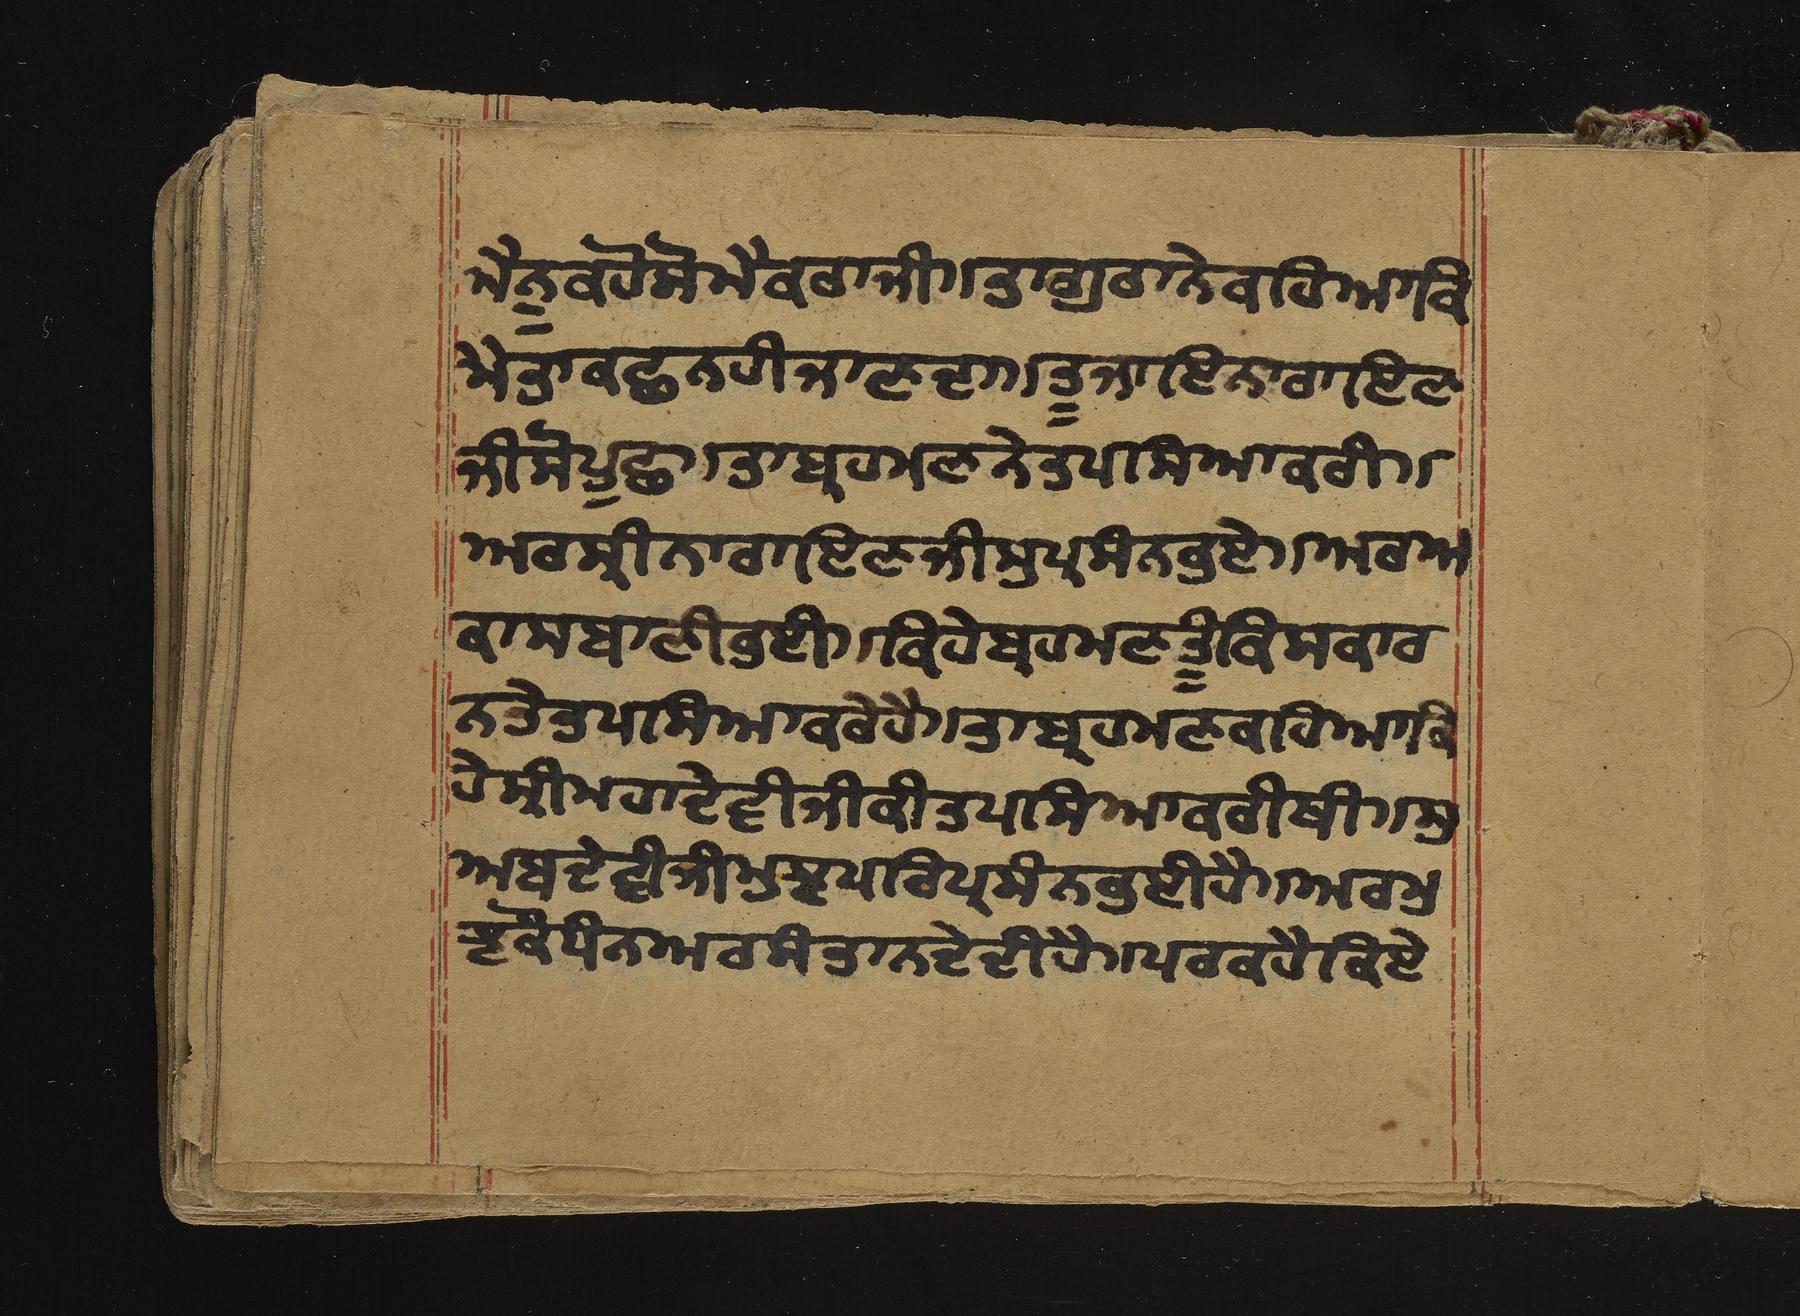 ਮੈਨੂਕਹੋਸੋਮੈਕਰਾਜੀ।ਤਾਗੁਰਾਨੇਕਹਿਆਕਿ
ਮੈਤਾਕਛੂਨਹੀਜਾਣਦਾ।ਤੂਜਾਇਨਾਰਾਇਣ
ਜੀਸੋਪੁਛਾ।ਤਾਬ੍ਰਹਮਣਨੇਤਪਸਿਆਕਰੀ।
ਅਰਸ੍ਰੀਨਾਰਾਇਣਜੀਸੁਪ੍ਰਸੰਨਹੁਏ।ਅਰਅ
ਕਾਸਬਾਣੀਹੁਈ।ਕਿਹੇਬ੍ਰਹਮਣਤੂੰਕਿਸਕਾਰ
ਨਤੇਤਪਸਿਆਕਰੇਹੈ।ਤਾਬ੍ਰਹਮਣਕਹਿਆਕਿ
ਹੇਸ੍ਰੀਮਹਾਦੇਵੀਜੀਕੀਤਪਸਿਆਕਰੀਥੀ।ਸੁ
ਅਬਦੇਵੀਜੀਮੁਝਪਰਿਪ੍ਰਸੰਨਹੁਈਹੈ।ਅਰਮੁ
ਝਕੌਧੰਨਅਰਸੰਤਾਨਦੇਦੀਹੈ।ਪਰਕਹੈਕਿਏ